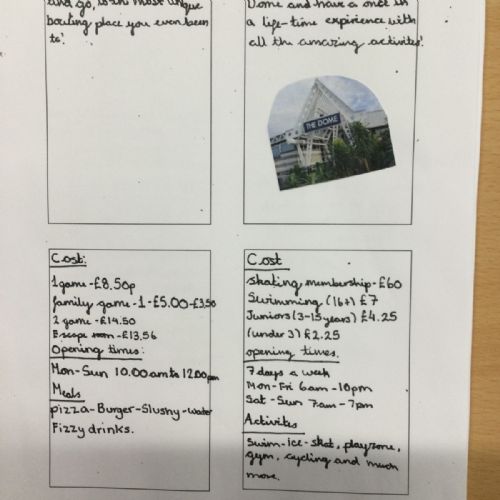 and go, is the most unique
bowling place you even been
to!
Dome and have a once in
a life-time expirience with
all the amazing activites!
THE DOME
Cost:
1 game - £8.50p
family game - 1 - £5.00 - £3,50
2 game - £14.50
Escape room - £13,56
Opening times:
Mon-Sun 10.00am to 12.00pm
Meals
pizza-Burger-Slushy-water
Fizzy drinks.
Cost
skating membership - £60
Swimming (16+) £7
Juniors (3-15 years) £4.25
(under 3) £2.25
opening times.
7 days a week
Mon-Fri 6am - 10pm
Sat - Sun 7am - 7pm
Activites
Swim-ice-skat, playzone,
gym, cycling and much
more.